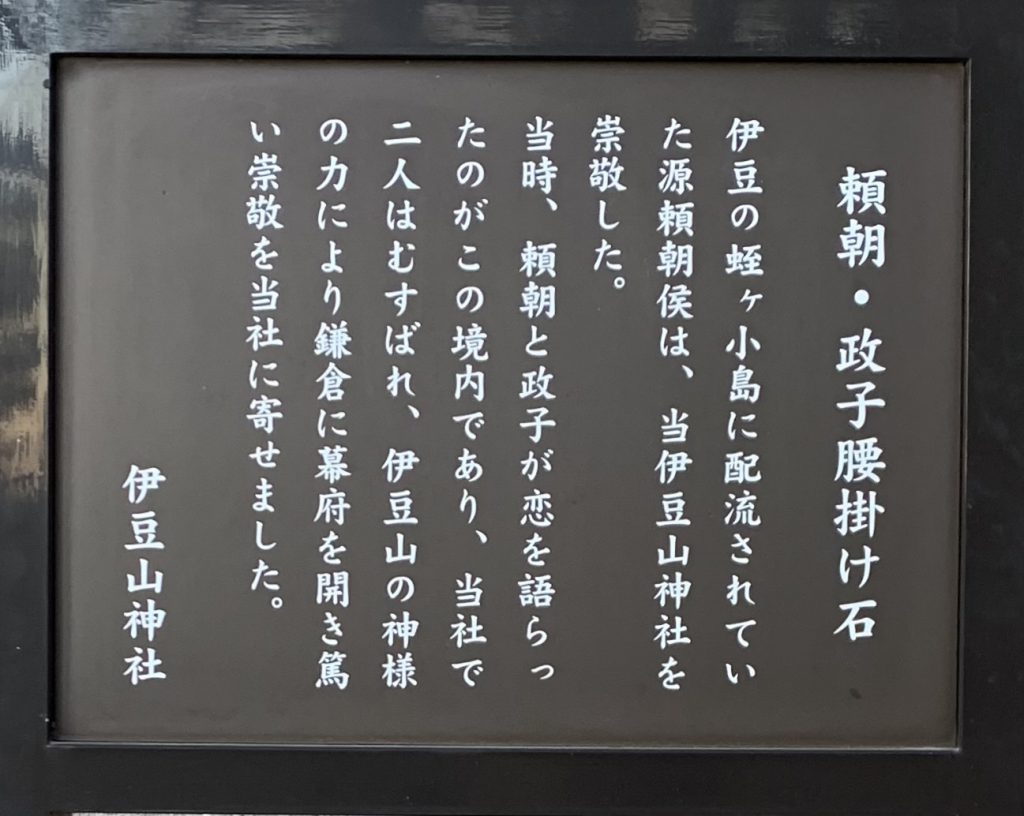 頼朝・政子腰掛け石
伊豆の蛭ヶ小島に配流されてい
た源頼朝侯は、当伊豆山神社を
崇敬した。
当時、頼朝と政子が恋を語らっ
たのがこの境内であり、当社で
二人はむすばれ、伊豆山の神様
の力により鎌倉に幕府を開き篤
い崇敬を当社に寄せました。
伊豆山神社